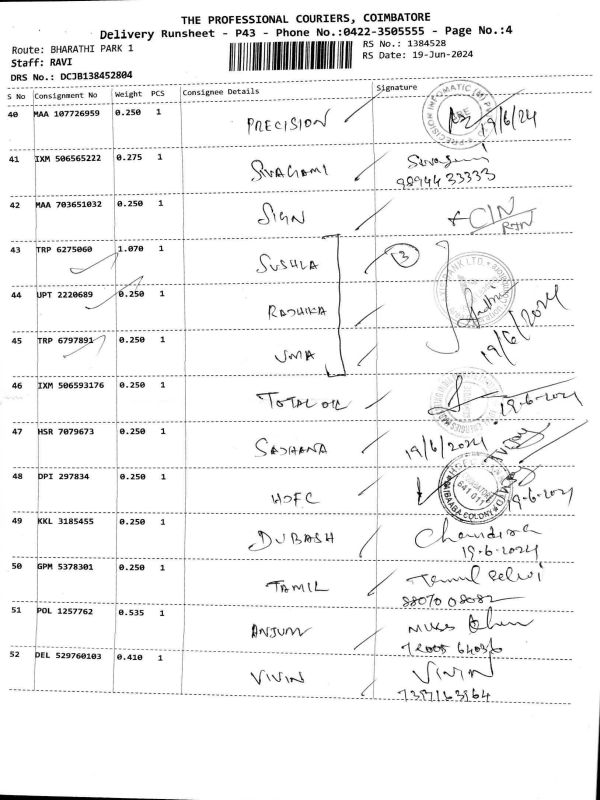 THE PROFESSIONAL COURIERS, COIMBATORE
Delivery Runsheet - P43 - Phone No.:0422-3505555 - Page No.:4
Route: BHARATHI PARK 1
RS No.: 1384528
Staff: RAVI
RS Date: 19-Jun-2024
DRS No.: DCJB138452804
S No Consignment No Weight PCS Consignee Details Signature
40 MAA 107726959 0.250 1 PRECISION 19/6/24
41 IXM 506565222 0.275 1 SIVAGAMI
98944 33333
42 MAA 703651032 0.250 1 SIGN
43 TRP 6275060 1.070 1 SUSHLA 3
44 UPT 2220689 0.250 1 RADHIKA
45 TRP 6797891 0.250 1 UMA 19/6/2024
46 IXM 506593176 0.250 1 TOTAL OIL 19-6-2024
47 HSR 7079673 0.250 1 SADHANA 19/6/2024
48 DPI 297834 0.250 1 HDFC 19-6-2024
49 KKL 3185455 0.250 1 DUBASH
19-6-2024
50 GPM 5378301 0.250 1 TAMIL Tamil Selvi
88070 08082
51 POL 1257762 0.535 1 ANJUM
52 DEL 529760103 0.410 1 VIVIN VIVIN